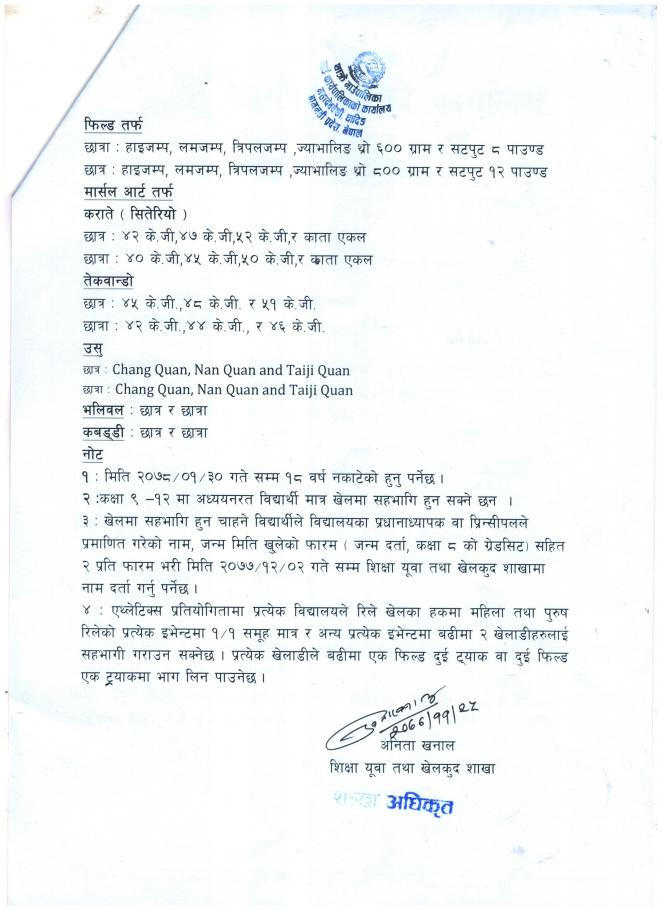 थाक्रे गाउँपालिका
गाउँ कार्यपालिकाको कार्यालय
महादेवबेसी, धादिङ
बागमती प्रदेश, नेपाल
फिल्ड तर्फ
छात्रा : हाइजम्प, लमजम्प, त्रिपलजम्प ,ज्याभालिङ थ्रो ६०० ग्राम र सटपुट ८ पाउण्ड
छात्र : हाइजम्प, लमजम्प, त्रिपलजम्प ,ज्याभालिङ थ्रो ८०० ग्राम र सटपुट १२ पाउण्ड
मार्सल आर्ट तर्फ
कराते ( सितेरियो )
छात्र : ४२ के.जी,४७ के.जी,५२ के.जी,र काता एकल
छात्रा : ४० के.जी,४५ के.जी,५० के.जी,र काता एकल
तेक्वान्डो
छात्र : ४५ के.जी.,४८ के.जी. र ५१ के.जी.
छात्रा : ४२ के.जी.,४४ के.जी., र ४६ के.जी.
उसु
छात्र : Chang Quan, Nan Quan and Taiji Quan
छात्रा : Chang Quan, Nan Quan and Taiji Quan
भलिवल : छात्र र छात्रा
कबड्डी : छात्र र छात्रा
नोट
१ : मिति २०७८/०१/३० गते सम्म १८ वर्ष नकाटेको हुनु पर्नेछ ।
२ :कक्षा ९ –१२ मा अध्ययनरत विद्यार्थी मात्र खेलमा सहभागि हुन सक्ने छन ।
३ : खेलमा सहभागि हुन चाहने विद्यार्थीले विद्यालयका प्रधानाध्यापक वा प्रिन्सीपलले
प्रमाणित गरेको नाम, जन्म मिति खुलेको फारम ( जन्म दर्ता, कक्षा ८ को ग्रेडसिट) सहित
२ प्रति फारम भरी मिति २०७७/१२/०२ गते सम्म शिक्षा यूवा तथा खेलकुद शाखामा
नाम दर्ता गर्नु पर्नेछ ।
४ : एथ्लेटिक्स प्रतियोगितामा प्रत्येक विद्यालयले रिले खेलका हकमा महिला तथा पुरुष
रिलेको प्रत्येक इभेन्टमा १/१ समूह मात्र र अन्य प्रत्येक इभेन्टमा बढीमा २ खेलाडीहरुलाई
सहभागी गराउन सक्नेछ । प्रत्येक खेलाडीले बढीमा एक फिल्ड दुई ट्याक वा दुई फिल्ड
एक ट्र्याकमा भाग लिन पाउनेछ ।
२०७७/११/२८
अनिता खनाल
शिक्षा यूवा तथा खेलकुद शाखा
शाखा अधिकृत